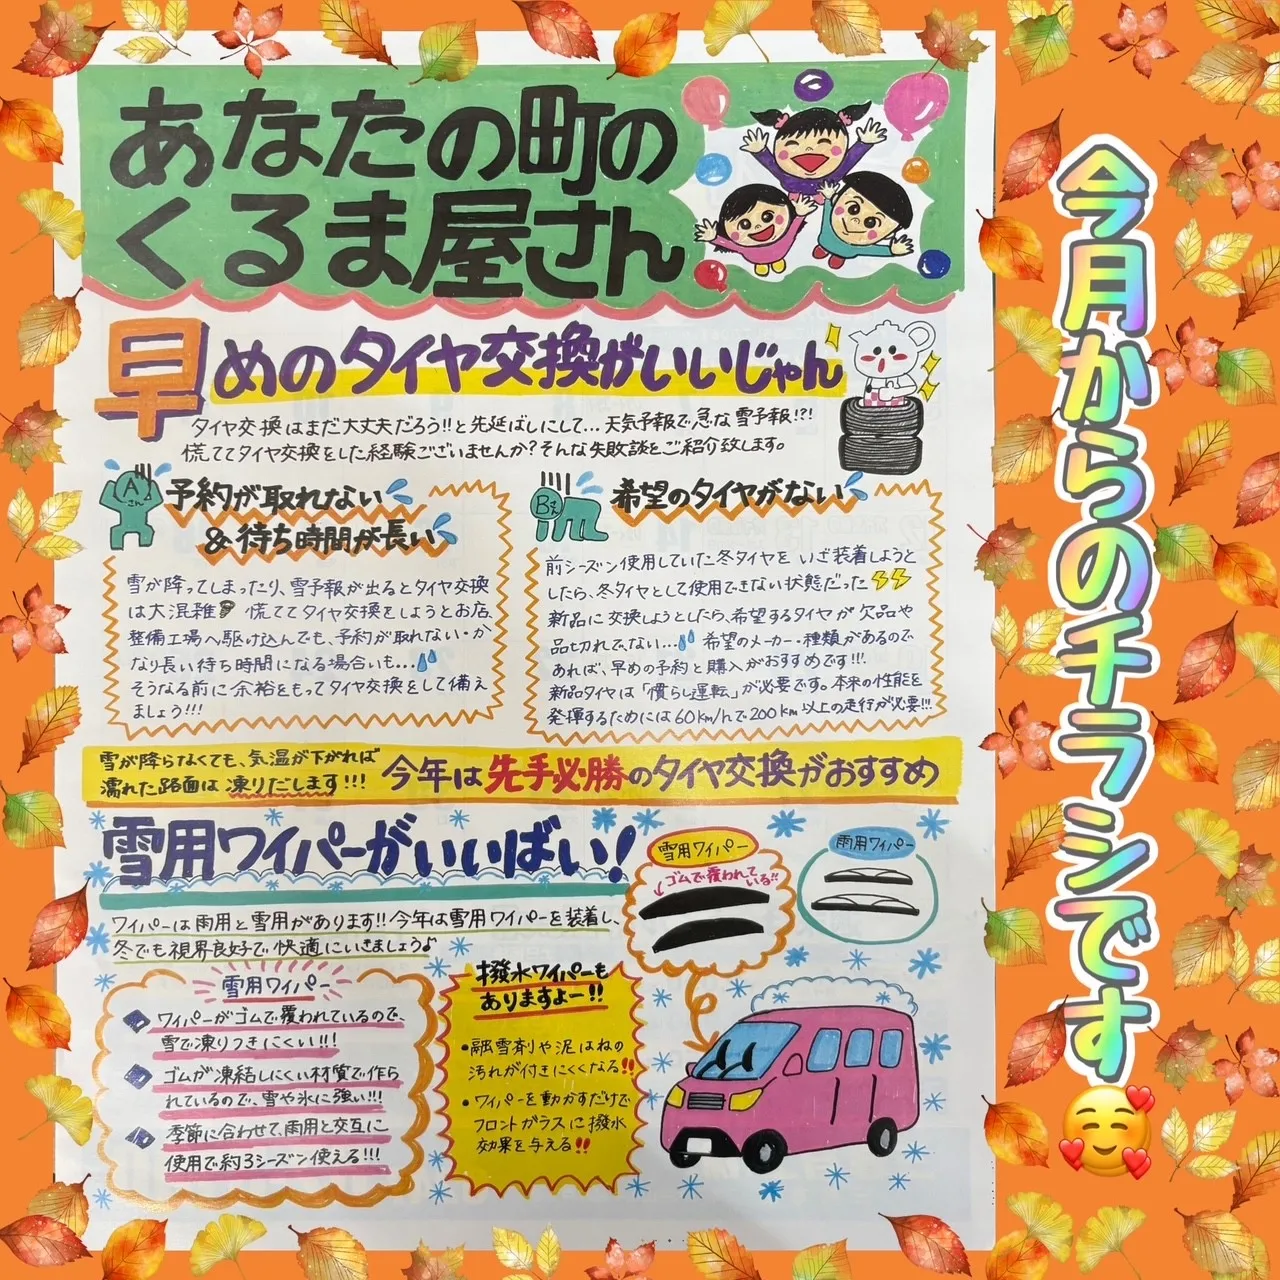 あなたの町の
くるま屋さん
早めのタイヤ交換がいいじゃん
タイヤ交換はまだ大丈夫だろう!!と先延ばしにして…天気予報で急な雪予報!?!
慌ててタイヤ交換をした経験ございませんか?そんな失敗談をご紹介致します。
Aさん
予約が取れない
&待ち時間が長い
雪が降ってしまったり、雪予報が出るとタイヤ交換
は大混雑 慌ててタイヤ交換をしようとお店、
整備工場へ駆け込んでも、予約が取れない・か
なり長い待ち時間になる場合いも…
そうなる前に余裕をもってタイヤ交換をして備え
ましょう!!!
Bさん
希望のタイヤがない
前シーズン使用していた冬タイヤをいざ装着しようと
したら、冬タイヤとして使用できない状態だった
新品に交換しようとしたら、希望するタイヤが欠品や
品切れでない… 希望のメーカー・種類があるので
あれば、早めの予約と購入がおすすめです!!!
新品タイヤは「慣らし運転」が必要です。本来の性能を
発揮するためには60km/hで200km以上の走行が必要!!!
雪が降らなくても、気温が下がれば
濡れた路面は凍りだします!!!
今年は先手必勝のタイヤ交換がおすすめ
雪用ワイパーがいいばい!
ワイパーは雨用と雪用があります!!今年は雪用ワイパーを装着し、
冬でも視界良好で快適にいきましょう♪
雪用ワイパー
ゴムで覆われている!!
雨用ワイパー
雪用ワイパー
ワイパーがゴムで覆われているので、
雪で凍りつきにくい!!!
ゴムが凍結しにくい材質で作ら
れているので、雪や氷に強い!!!
季節に合わせて、雨用と交互に
使用で約3シーズン使える!!!
撥水ワイパーも
ありますよー!!
・融雪剤や泥はねの
汚れが付きにくくなる!!
・ワイパーを動かすだけで
フロントガラスに撥水
効果を与える!!
今月からのチラシです